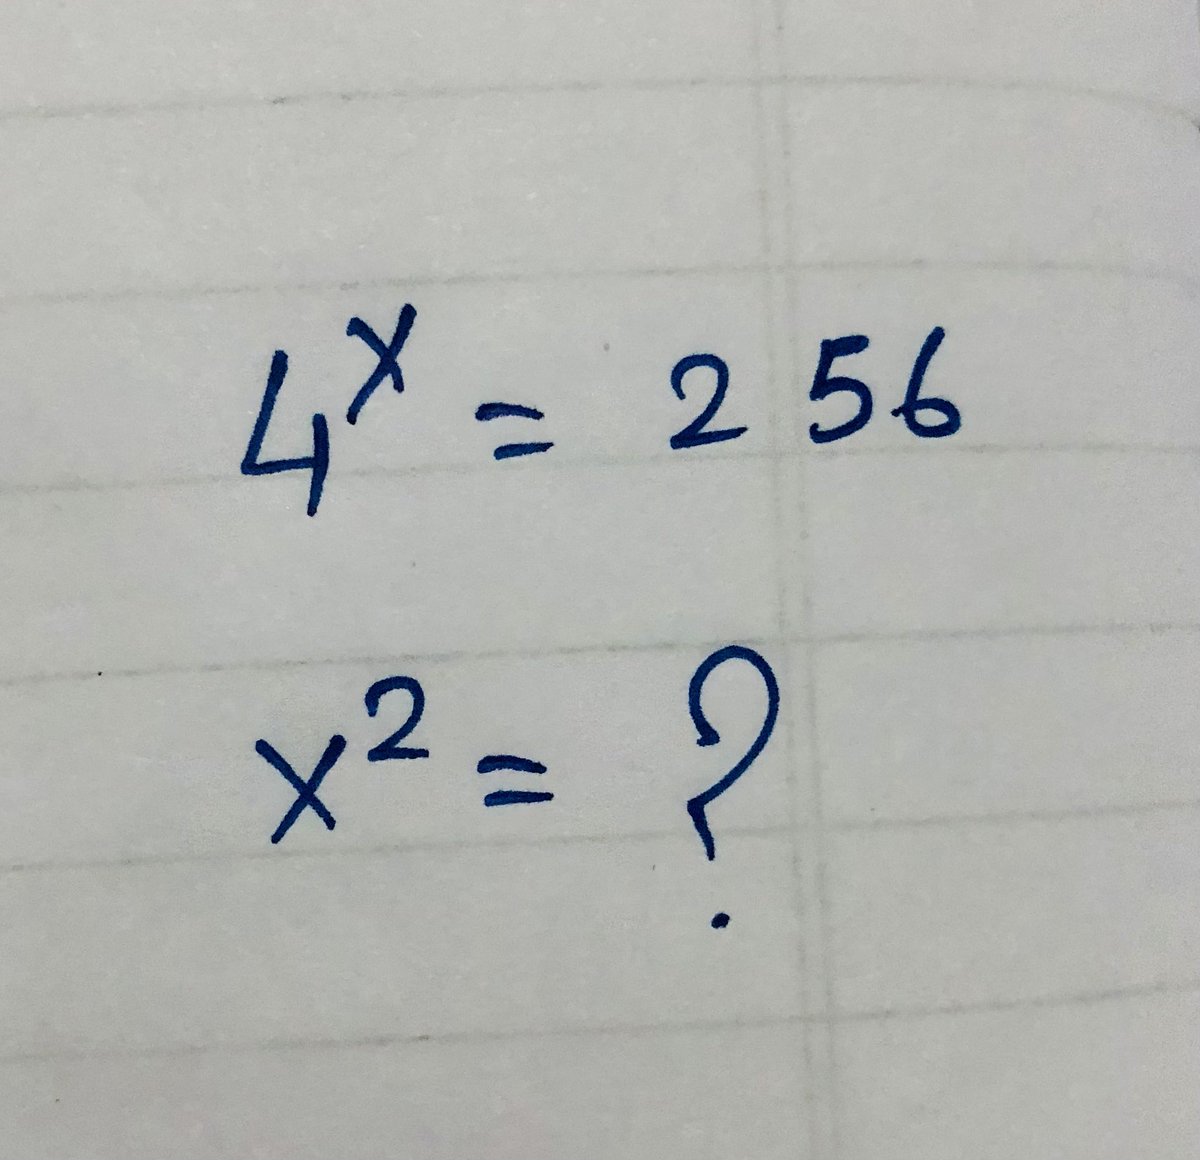 4^x = 256
x^2 = ?